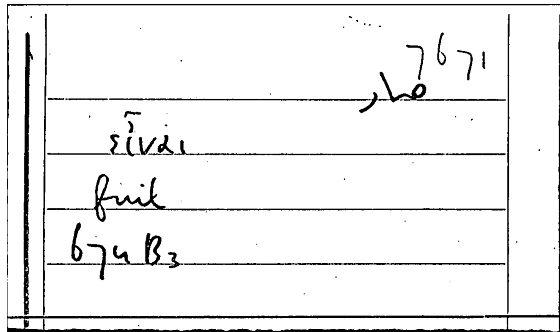 7671
صار
εἶναι
fuit
674 B3